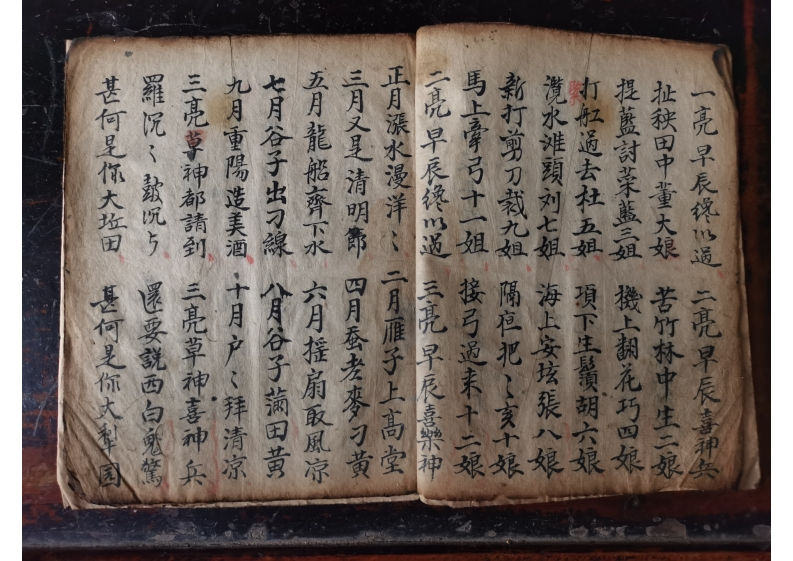 一亮早辰纔以過 二亮早辰喜神兵
扯秧田中董大娘 苦竹林中生二娘
提藍討菜藍三姐 機上翻花巧四娘
打缸過去杜五姐 項下生鬚胡六娘
灒水滩頭刘七姐 海上安玹張八娘
新打剪刀裁九姐 隔夜把〻亥十娘
馬上牽弓十一姐 接弓過来十二娘
二亮早辰纔以過 三亮早辰喜樂神
正月漲水漫洋〻 二月雁子上高堂
三月又是清明節 四月蚕老麥刁黃
五月龍船齊下水 六月摇扇取風凉
七月谷子出刁線 八月谷子滿田黄
九月重陽造美酒 十月户〻拜清凉
三亮草神都請到 三亮草神喜神兵
羅沉〻皷沉与 還要說西白鬼驚
甚何是你大坵田 甚何是你大犁园